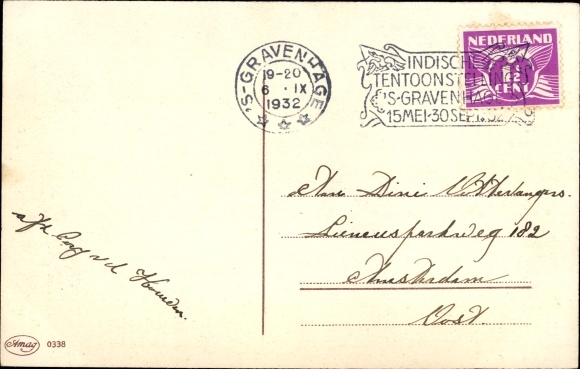 'S-GRAVENHAGE
19-20
6 · IX
1932
INDISCHE
TENTOONSTELLING
'S-GRAVENHAGE
15 MEI-30 SEPT. 32
NEDERLAND
CENT
Aan Dini
Linneusparkweg 182
Amsterdam
Oost.
afz
v d
Amag 0338